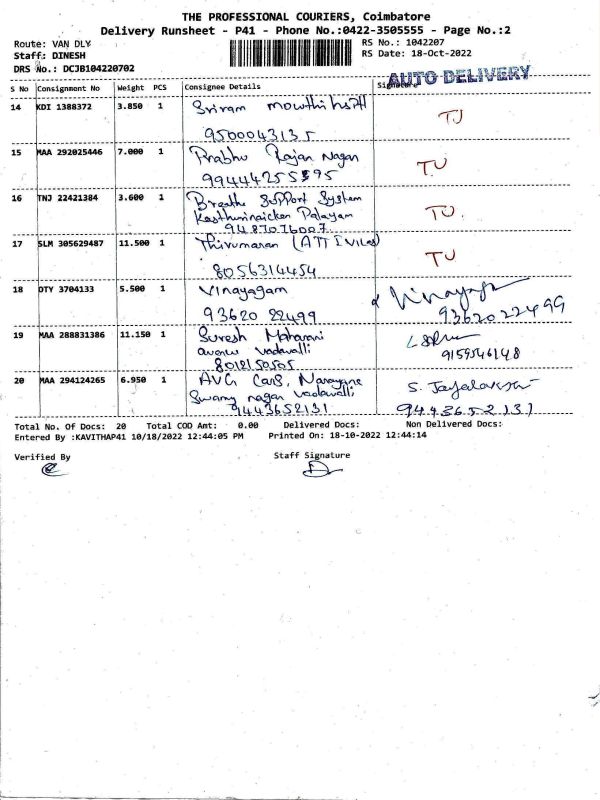 THE PROFESSIONAL COURIERS, Coimbatore
Delivery Runsheet - P41 - Phone No.:0422-3505555 - Page No.:2
Route: VAN DLY
RS No.: 1042207
Staff: DINESH
RS Date: 18-Oct-2022
DRS No.: DCJB104220702
AUTO DELIVERY
S No Consignment No Weight PCS Consignee Details Signature
14 KDI 1388372 3.850 1 Sriram
TJ
9500043135
15 MAA 292025446 7.000 1 Prabhu Rajan Nagar
TU
16 TNJ 22421384 3.600 1 Breathe Support System
Kasthurinaicken Palayam
TU.
9487076007
17 SLM 305629487 11.500 1 Thirumaran
TU
8056314454
18 DTY 3704133 5.500 1 Vinayagam
93620 22499
9362022499
19 MAA 288831386 11.150 1 Suresh Maharani
avenue vadavalli
8012150505
9159546148
20 MAA 294124265 6.950 1 AVG Cars, Narayana
Swamy nagar vadavalli
9443652131
S.
9443652131
Total No. Of Docs: 20 Total COD Amt: 0.00 Delivered Docs: Non Delivered Docs:
Entered By :KAVITHAP41 10/18/2022 12:44:05 PM Printed On: 18-10-2022 12:44:14
Verified By Staff Signature